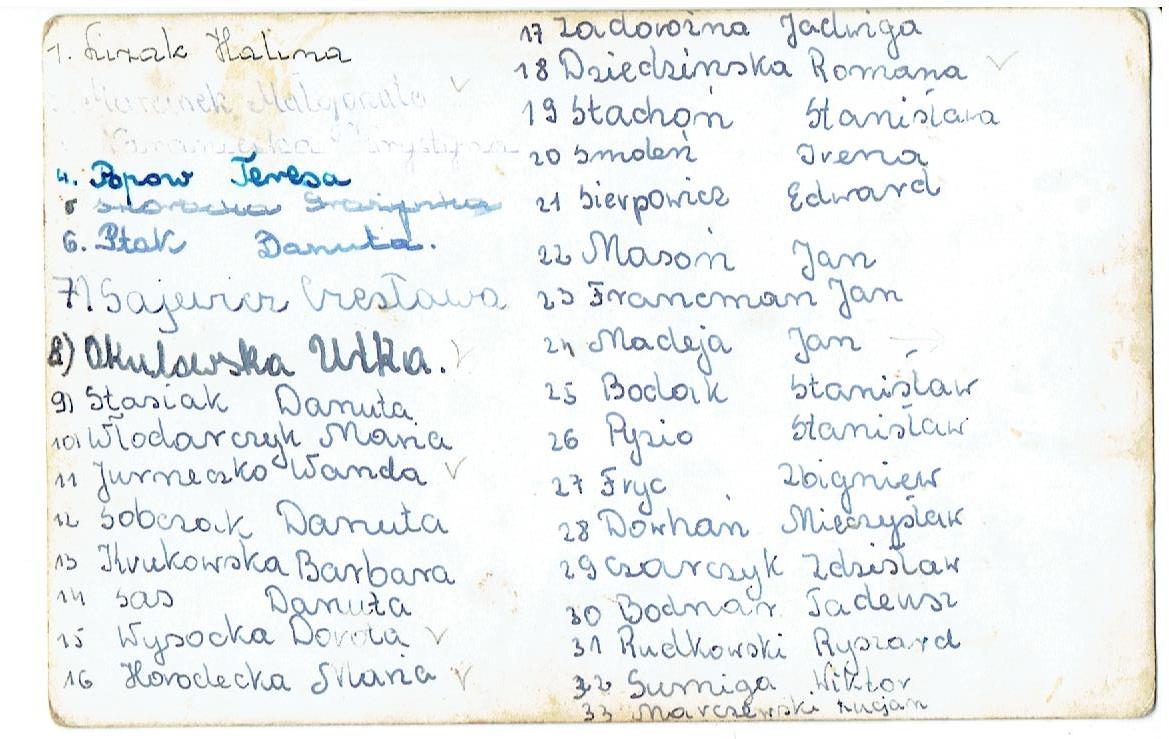 1. Lizak Halina
Marcinek Małgorzata
Krystyna
4. Popow Teresa
5
6. Ptak Danuta.
7) Gajewicz Czesława
8) Okulowska Ulka.
9) Stasiak Danuta
10) Włodarczyk Maria
11 Jurneczko Wanda
12 Sobczak Danuta
13 Krukowska Barbara
14 Sas Danuta
15 Wysocka Dorota
16 Horodecka Maria
17 Zadorożna Jadwiga
18 Dziedzińska Romana
19 Stachoń Stanisława
20 Smoleń Irena
21 Sierpowicz Edward
22 Masoń Jan
23 Francman Jan
24 Madeja Jan
25 Bodak Stanisław
26 Pyzio Stanisław
27 Fryc Zbigniew
28 Dowhań Mieczysław
29 Czarczyk Zdzisław
30 Bodnar Tadeusz
31 Rudkowski Ryszard
32 Surniga Wiktor
33 Marczewski Lucjan